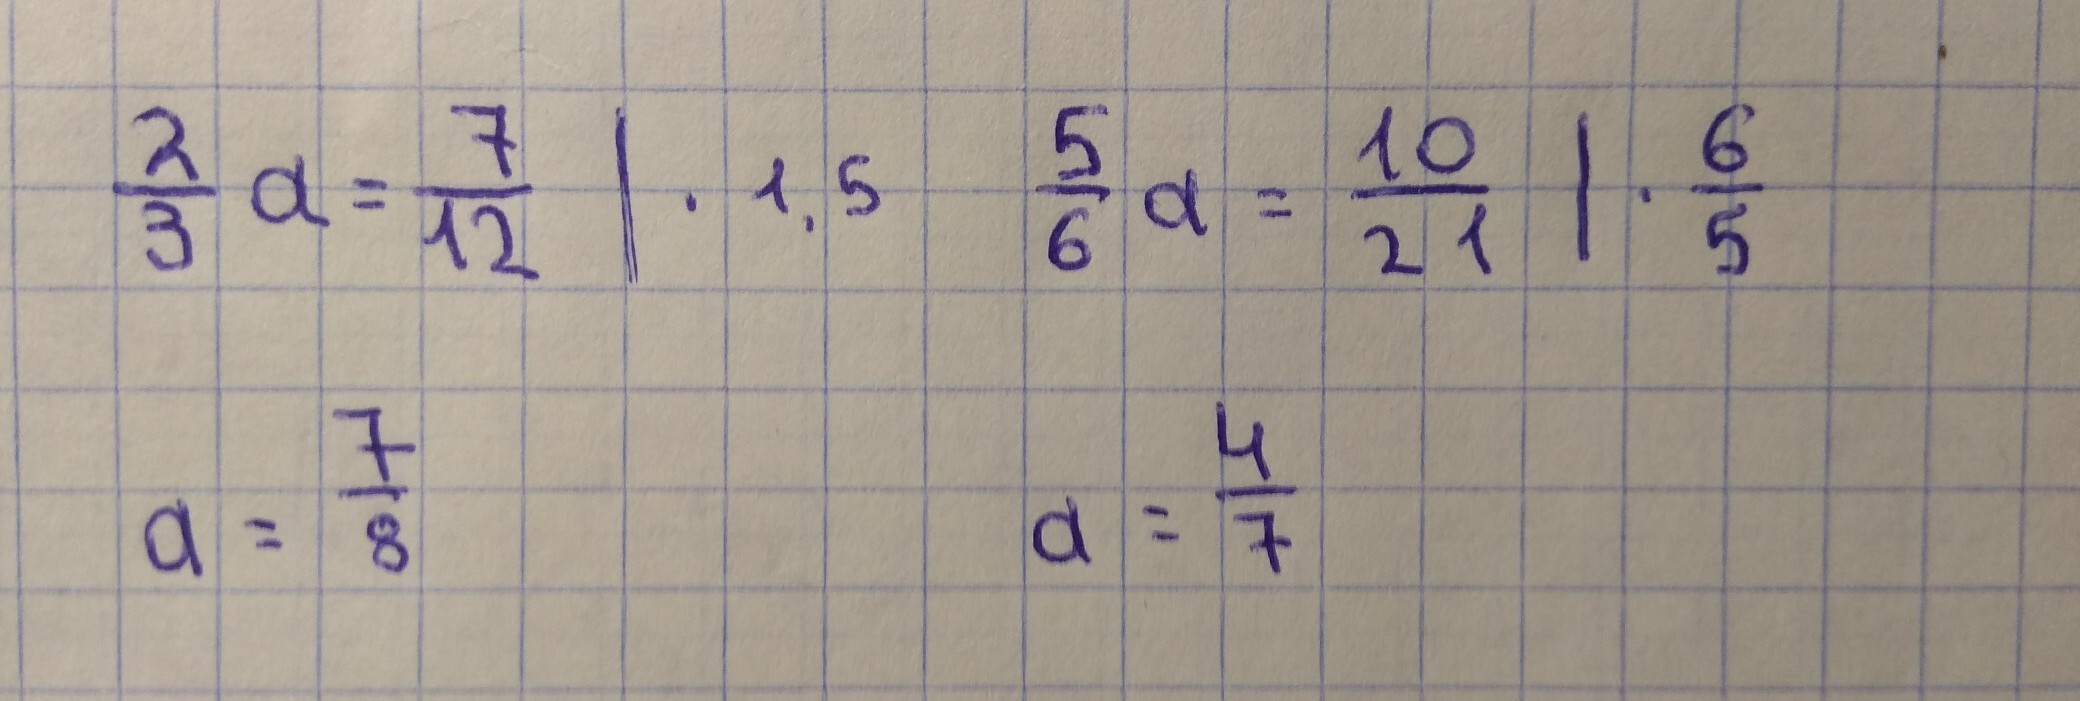 2/3 a = 7/12 | · 1,5
a = 7/8
5/6 a = 10/21 | · 6/5
a = 4/7